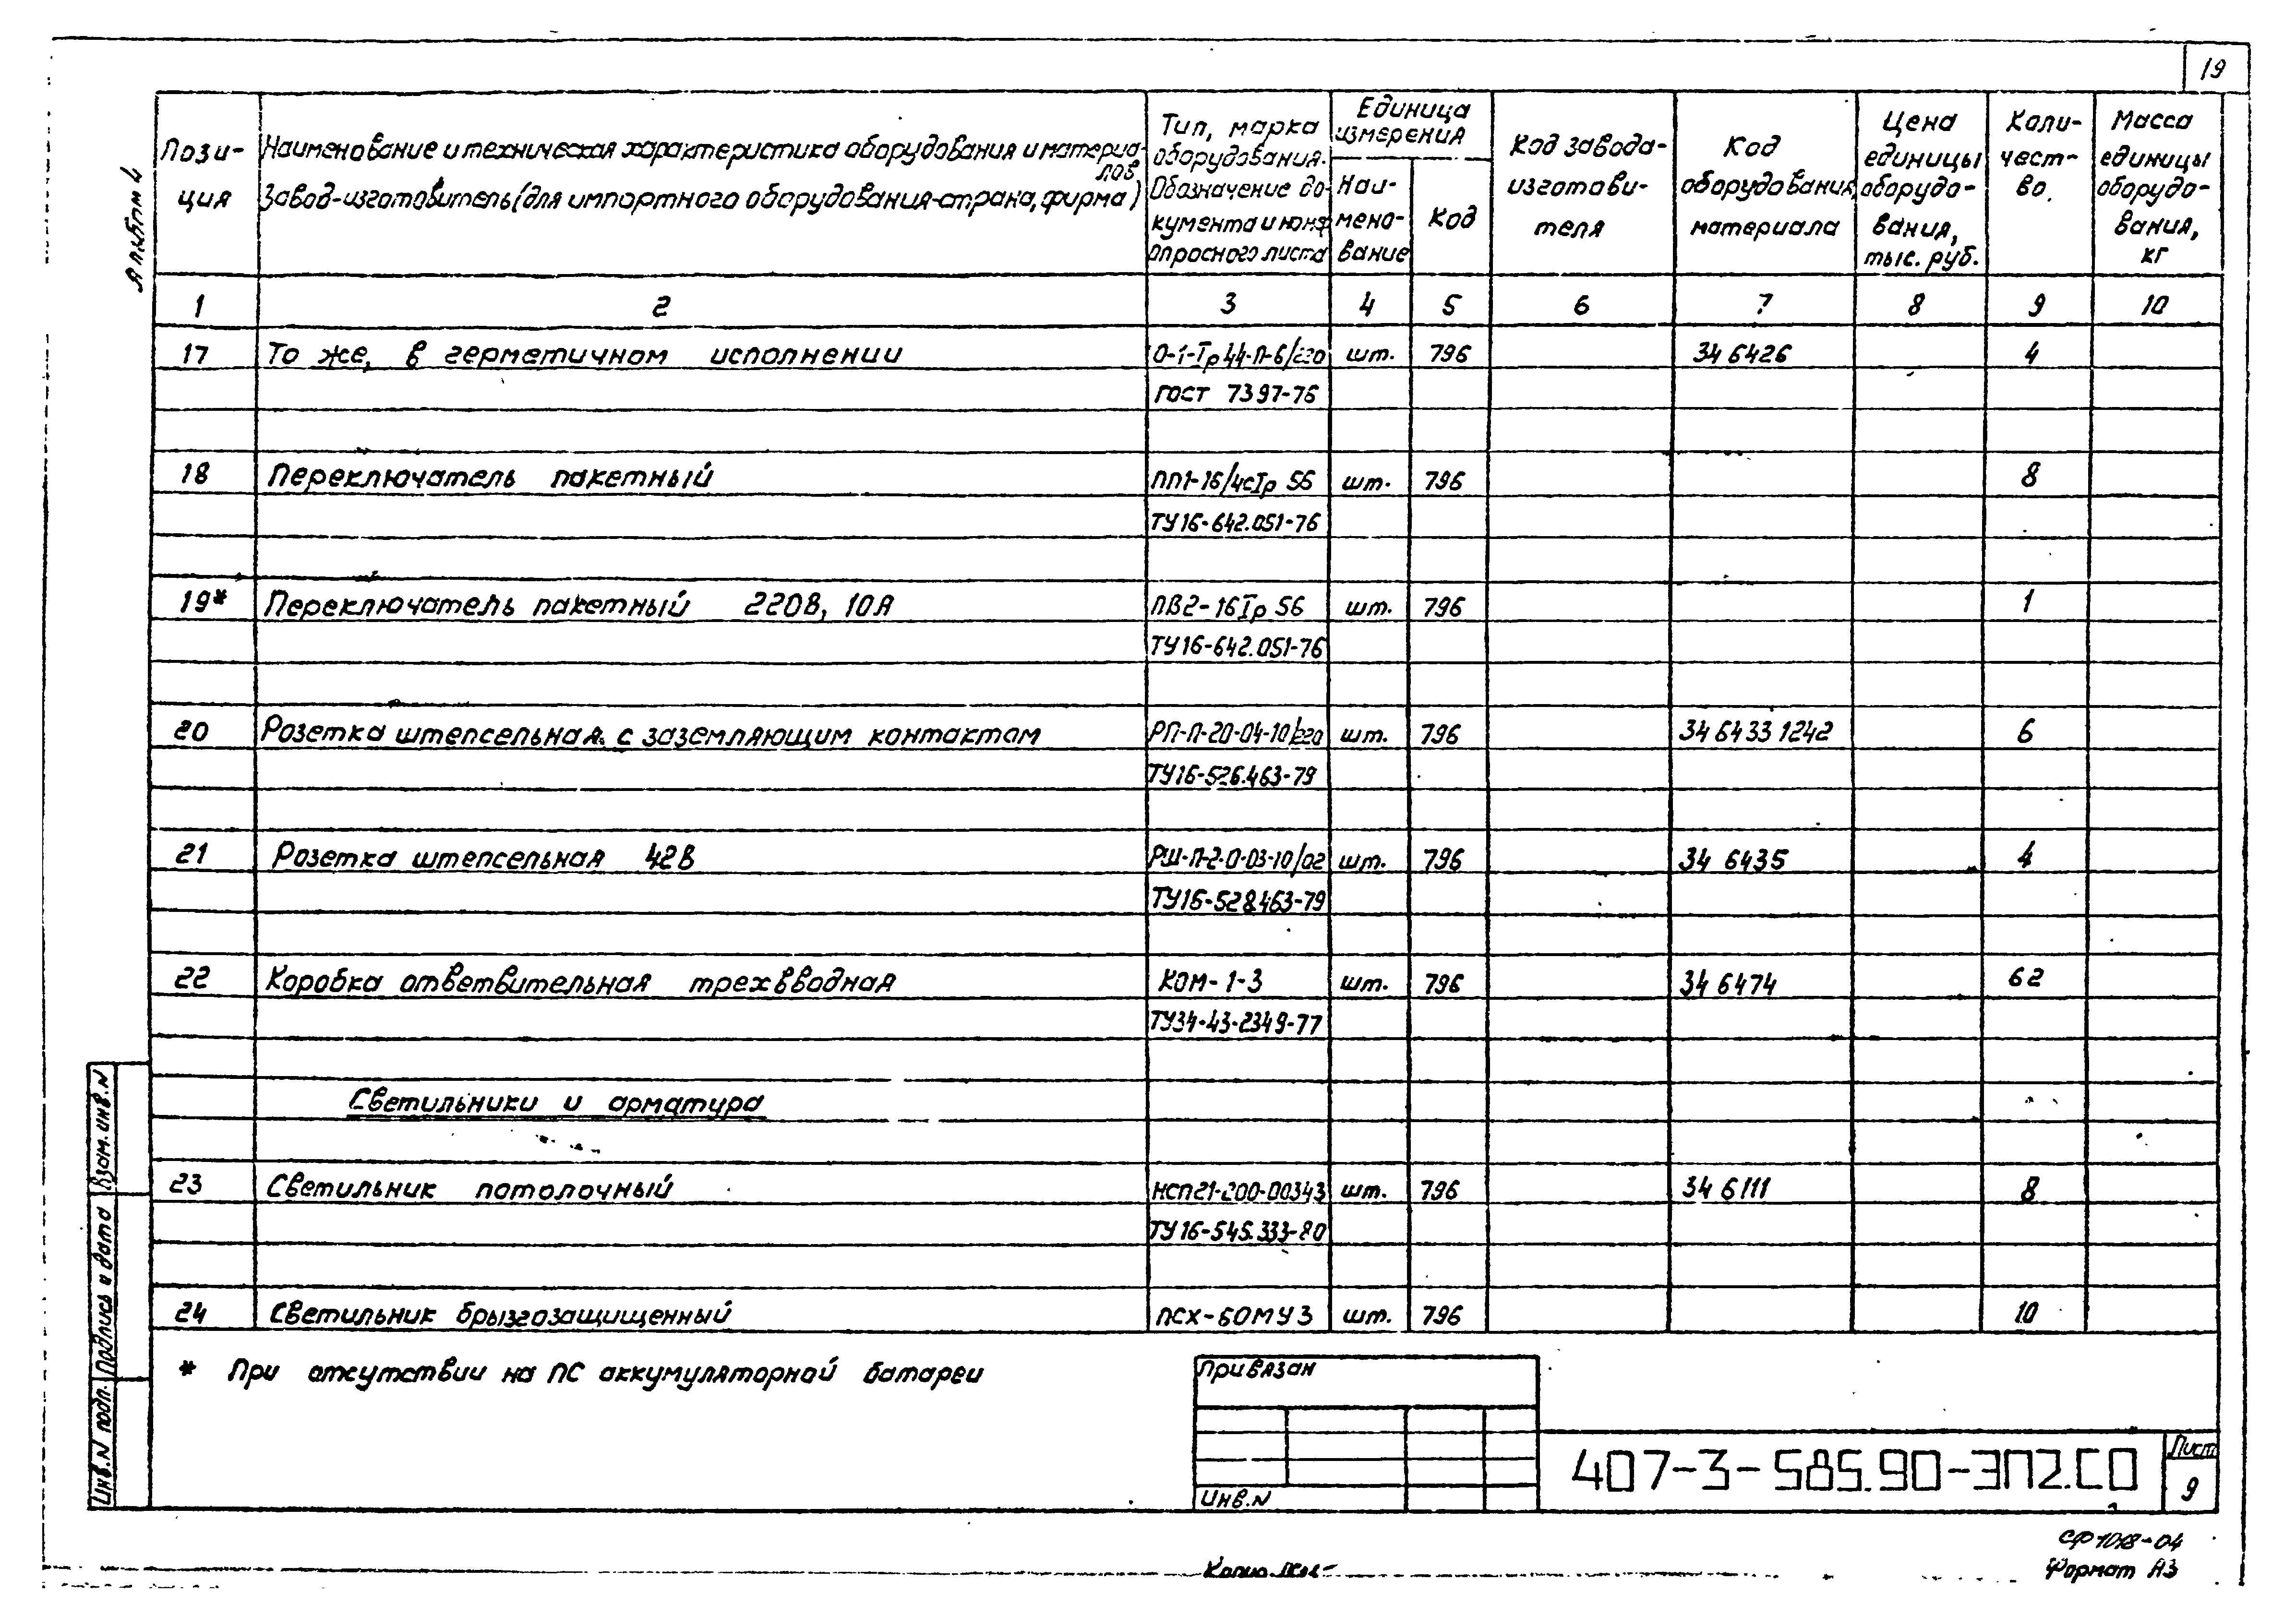 19
Альбом 4
Пози-
ция
Наименование и техническая характеристика оборудования и материа-
лов
Завод-изготовитель (для импортного оборудования-страна, фирма)
Тип, марка
оборудования.
Обозначение до-
кумента и номер
опросного листа
Единица
измерения
Наи-
мено-
вание
Код
Код завода-
изготови-
теля
Код
оборудования,
материала
Цена
единицы
оборудо-
вания,
тыс. руб.
Коли-
чест-
во.
Масса
единицы
оборудо-
вания,
кг
1 2 3 4 5 6 7 8 9 10
17 То же, в герметичном исполнении 0-1-Iр44-П-6/220 шт. 796 34 6426 4
ГОСТ 7397-76
18 Переключатель пакетный ПП1-16/4сIр 56 шт. 796 8
ТУ16-642.051-76
19* Переключатель пакетный 220В, 10А ПВ2-16Iр 56 шт. 796 1
ТУ16-642.051-76
20 Розетка штепсельная с заземляющим контактом РП-П-20-04-10/220 шт. 796 34 6433 1242 6
ТУ16-526.463-79
21 Розетка штепсельная 42В РШ-П-2-0-03-10/02 шт. 796 34 6435 4
ТУ16-528.463-79
22 Коробка ответвительная трехвводная КОМ-1-3 шт. 796 34 6474 62
ТУ34-43-2349-77
Светильники и арматура
23 Светильник потолочный НСП21-200-00343 шт. 796 34 6111 8
ТУ16-545.333-80
24 Светильник брызгозащищенный ПСХ-60МУ3 шт. 796 10
* При отсутствии на ПС аккумуляторной батареи
Привязан
Инв.N
407-3-585.90-ЭП2.СО
Лист
9
Взам. инв. N
Подпись и дата
Инв. N подл.
СФ1018-04
Формат А3